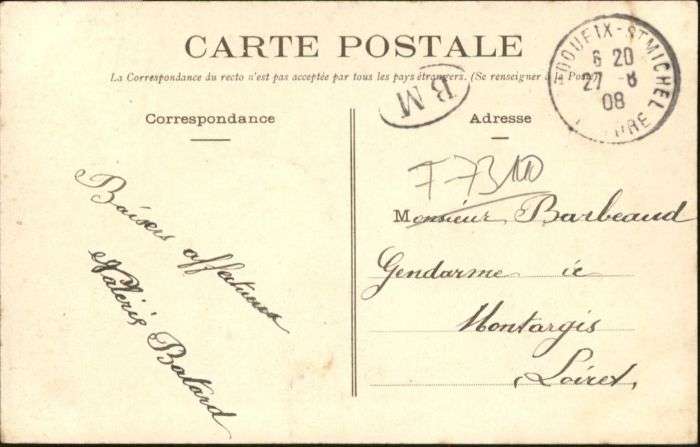 CARTE POSTALE
La Correspondance du recto n'est pas acceptée par tous les pays étrangers. (Se renseigner à la Poste)
BM
ST MICHEL
6 20
27 -8
08
Correspondance
Adresse
Baisers affectueux
Valéris Batard
F7310
Monsieur Barbeaud
Gendarme ie
Montargis
Loiret